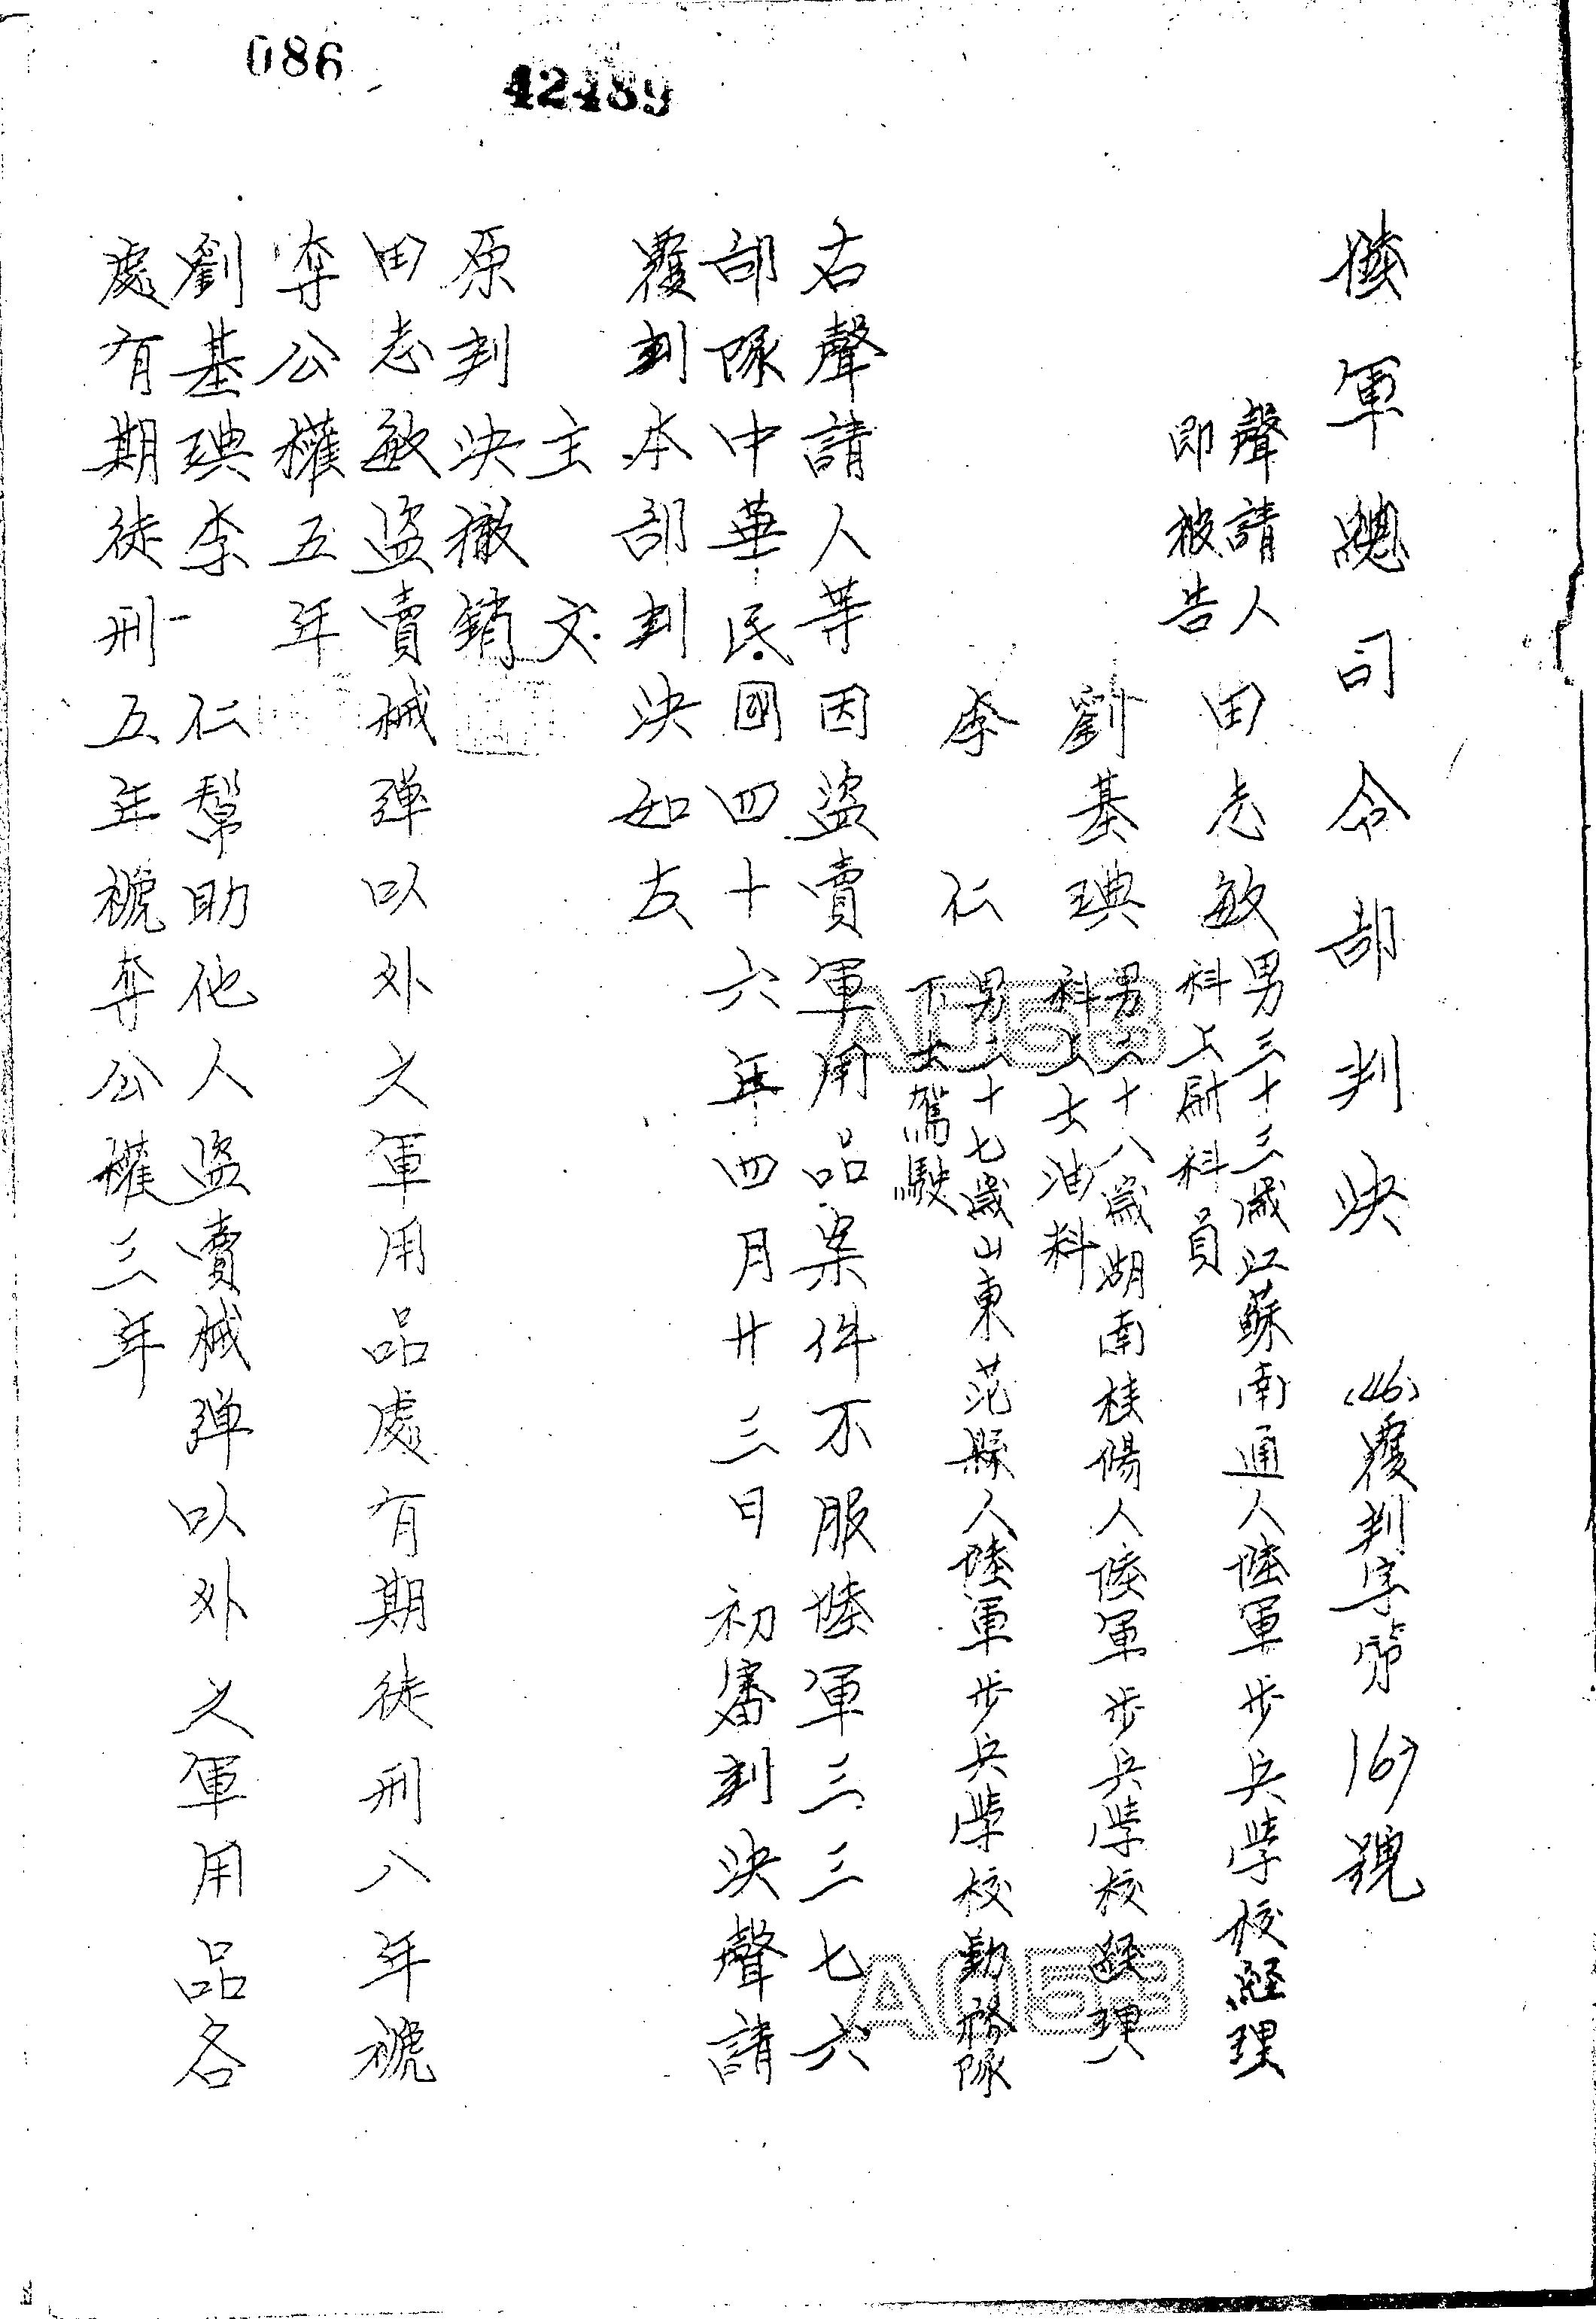 086
42489
陸軍總司令部判決 (46)覆判字第167號
聲請人
即被告
田志敏
男三十三歲江蘇南通人陸軍步兵學校經理
科上尉科員
劉基琠
男二十八歲湖南桂陽人陸軍步兵學校經理
科上士油料
李仁
男二十七歲山東范縣人陸軍步兵學校勤務隊
下士駕駛
右聲請人等因盜賣軍用品案件不服陸軍三三七六
部隊中華民國四十六年四月廿三日初審判決聲請
覆判本部判決如左
主文
原判決撤銷
田志敏盜賣械彈以外之軍用品處有期徒刑八年褫
奪公權五年
劉基琠李仁幫助他人盜賣械彈以外之軍用品各
處有期徒刑五年褫奪公權三年
A053
A053